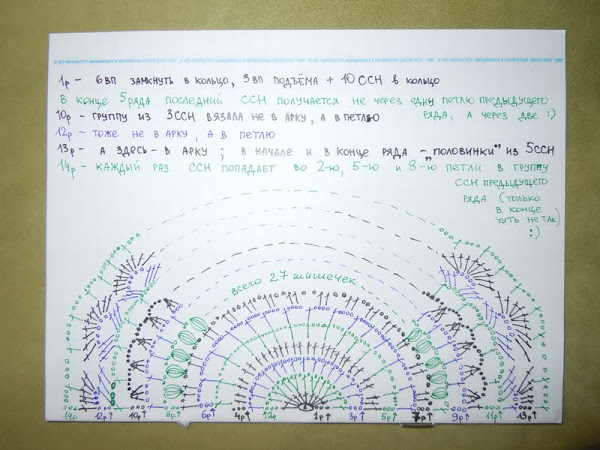 1р - 6ВП ЗАМКНУТЬ В КОЛЬЦО, 3ВП ПОДЪЁМА + 10 ССН В КОЛЬЦО
В КОНЦЕ 5 РЯДА ПОСЛЕДНИЙ ССН ПОЛУЧАЕТСЯ НЕ ЧЕРЕЗ ОДНУ ПЕТЛЮ ПРЕДЫДУЩЕГО
РЯДА, А ЧЕРЕЗ ДВЕ :)
10р - ГРУППУ ИЗ 3ССН ВЯЗАЛА НЕ В АРКУ, А В ПЕТЛЮ
12р - ТОЖЕ НЕ В АРКУ, А В ПЕТЛЮ
13р - А ЗДЕСЬ - В АРКУ; В НАЧАЛЕ И В КОНЦЕ РЯДА - „ПОЛОВИНКИ" ИЗ 5ССН
14р - КАЖДЫЙ РАЗ ССН ПОПАДАЕТ ВО 2-Ю, 5-Ю И 8-Ю ПЕТЛИ В ГРУППУ
ССН ПРЕДЫДУЩЕГО
РЯДА (ТОЛЬКО
В КОНЦЕ
ЧУТЬ НЕ ТАК)
:)
всего 27 шишечек
14р 12р↑ 10р↑ 8р↑ 6р↑ 4р↑ 1 3р↑ 5р↑ 7р↑ 9р↑ 11р↑ 13р↑